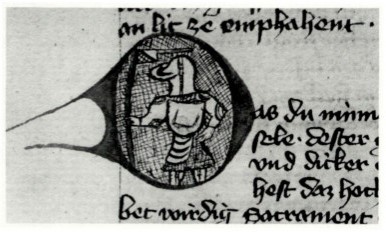 an lic ze emphahent ·
as du minn
sele · dester
vnd dicker
hest daz hoch
bet wirdig Sacrament